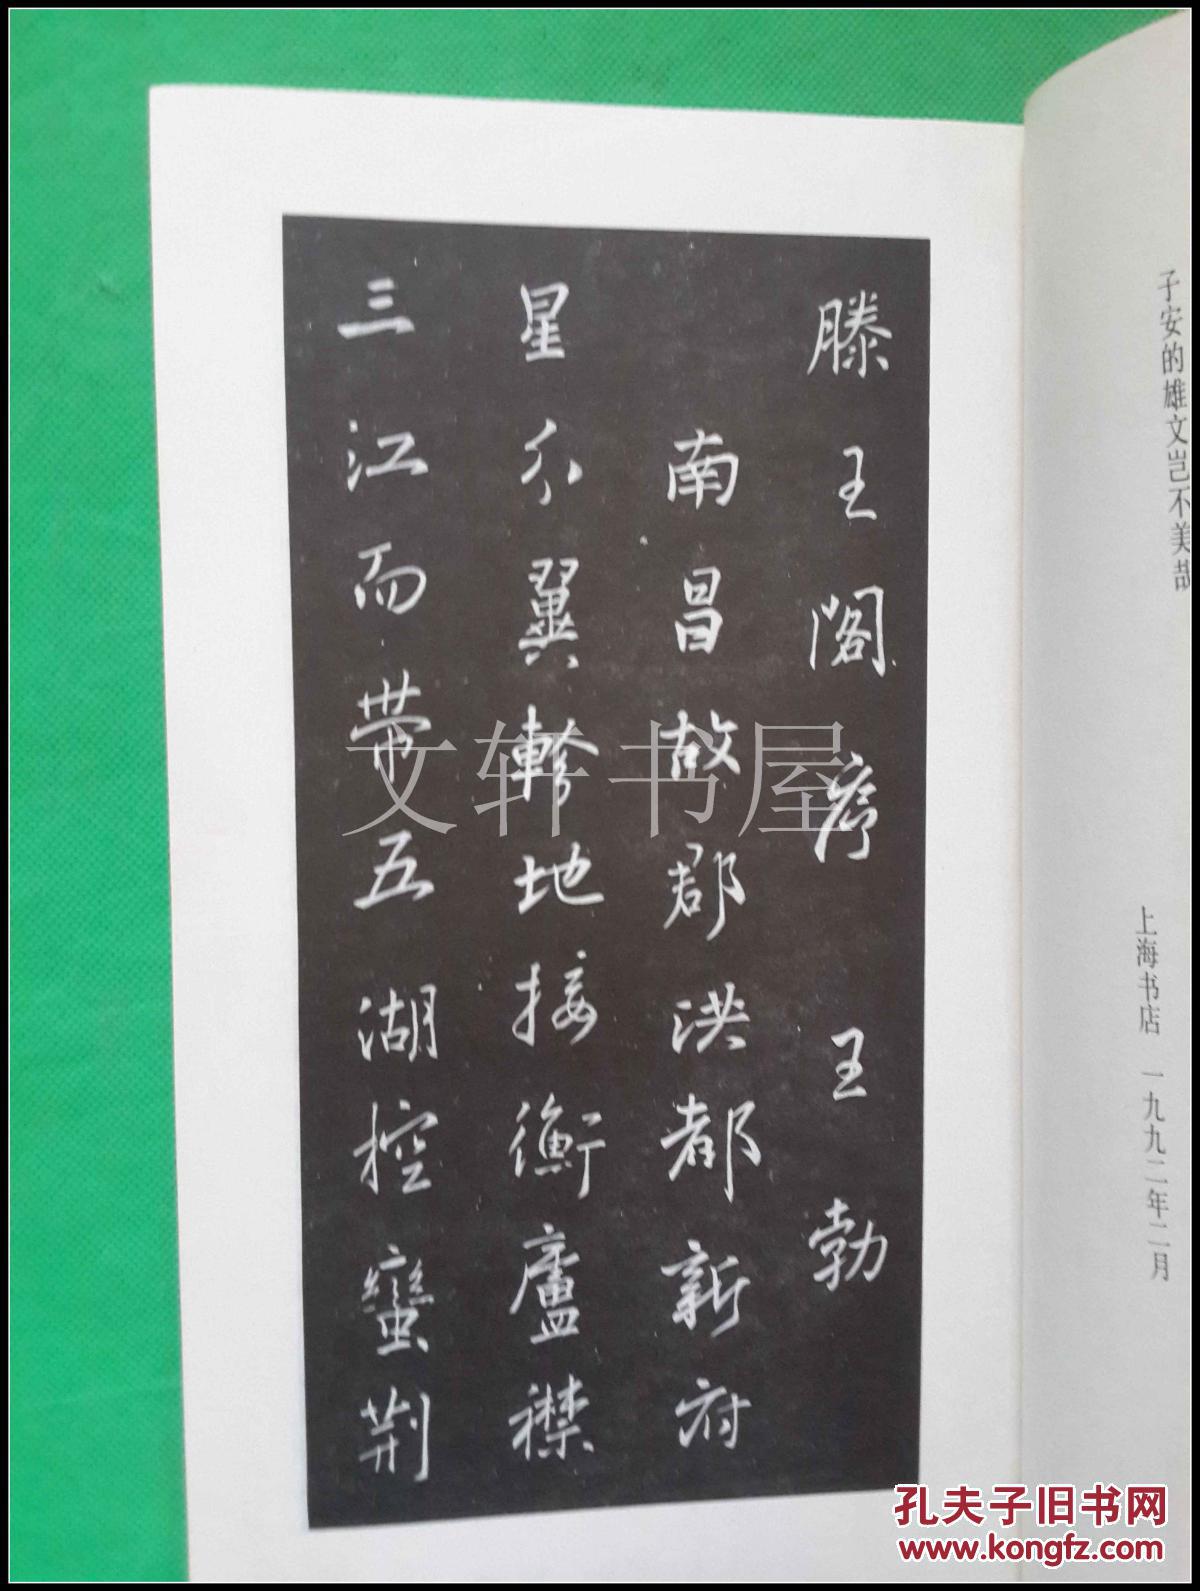 子安的雄文岂不美哉
上海书店 一九九二年二月
滕王阁序 王勃
南昌故郡洪都新府
星分翼軫地接衡廬襟
三江而带五湖控蠻荆
文轩书屋
孔夫子旧书网
www.kongfz.com